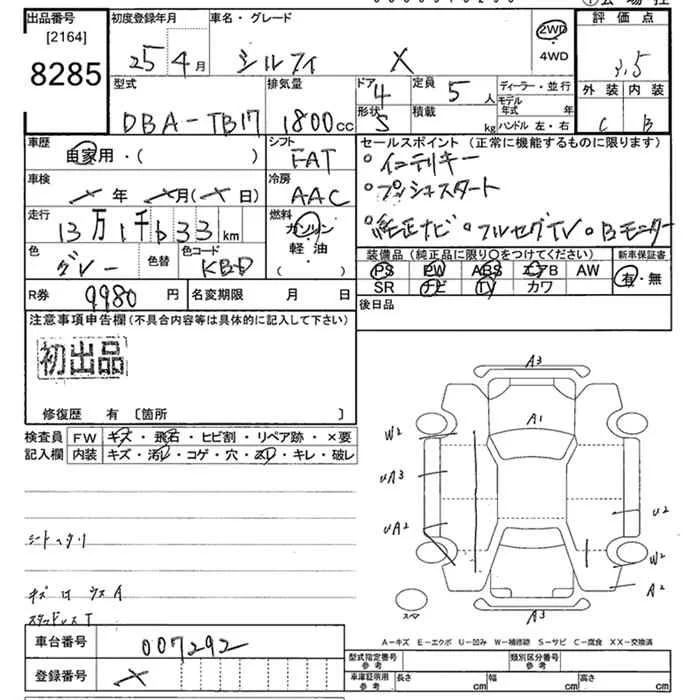 出品番号
[2164]
8285
初度登録年月
25年 4月
車名・グレード
シルフィ X
2WD
・
4WD
評価点
3.5
外装 内装
C B
型式
DBA-TB17
排気量
1800cc
ドア
4
形状
S
定員
5人
積載
kg
ディーラー・並行
モデル年式 年
ハンドル 左・右
車歴
自家用・( )
シフト
FAT
セールスポイント (正常に機能するものに限ります)
・インテリキー
・プッシュスタート
・純正ナビ ・フルセグTV ・Bモニター
車検
年 月( 日)
冷房
AAC
走行
13万1千633km
燃料
ガソリン
・
軽・油
( )
色
グレー
色替
色コード
KBD
装備品 (純正品に限り○をつけてください)
PS PW ABS エアB AW
SR ナビ TV カワ
新車保証書
有・無
R券 9980円
名変期限 月 日
後日品
注意事項申告欄(不具合内容等は具体的に記入して下さい)
初出品
修復歴 有 〔箇所 〕
検査員
記入欄
FW キズ・飛石・ヒビ割・リペア跡・×要
内装 キズ・汚レ・コゲ・穴・スレ・キレ・破レ
シートヘタリ
スタッドレスT
A3
A1
W2
UA3
UA2
U2
W2
A2
A3
スペア
A-キズ E-エクボ U-凹み W-補修跡 S-サビ C-腐食 XX-交換済
車台番号 007292
登録番号
型式指定番号
参考
類別区分番号
参考
車庫証明用
参考
長さ cm 幅 cm 高さ cm